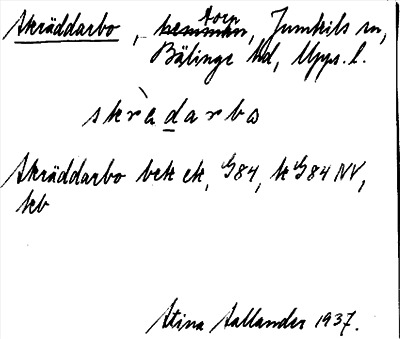 Skräddarbo, torp, Jumkils sn,
Bälinge hd, Upps. l.
skrὰdarbo
Skräddarbo bek ek, G84, k G84 NV,
kb
Stina Sallander 1937.